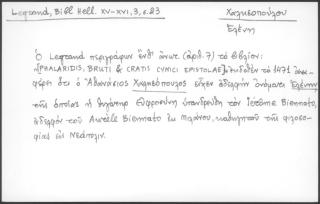 Legrand, Bibl. Hell. XV-XVI, 3, σ. 23
Χαλκεοπούλου
Ελένη
Ὁ Legrand περιγράφων ἔνθ' ἀνωτ. (ἀριθ. 7) τὸ βιβλίον:
«[PHALARIDIS, BRUTI & CRATIS CYNICI EPISTOLAE]» ἐκδοθὲν τὸ 1471 ἀνα-
φέρει ὅτι ὁ Ἀθανάσιος Χαλκεόπουλος εἶχεν ἀδελφὴν ὀνόματι Ἑλένην
τῆς ὁποίας ἡ θυγάτηρ Εὐφροσύνη ὑπανδρεύθη τὸν Jérôme Biennato,
ἀδελφὸν τοῦ Aurèle Biennato ἐκ Μιλάνου, καθηγητοῦ τῆς φιλοσο-
φίας εἰς Νεάπολιν.